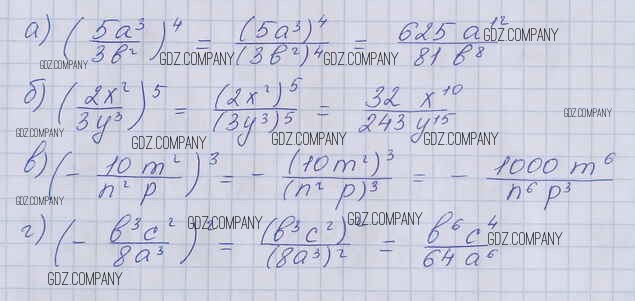 а) (5a³/3b²)⁴ = (5a³)⁴/(3b²)⁴ = 625 a¹²/81 b⁸
GDZ.COMPANY GDZ.COMPANY GDZ.COMPANY GDZ.COMPANY
б) (2x²/3y³)⁵ = (2x²)⁵/(3y³)⁵ = 32 x¹⁰/243 y¹⁵
GDZ.COMPANY GDZ.COMPANY GDZ.COMPANY GDZ.COMPANY GDZ.COMPANY
в) (- 10 m²/n² p)³ = - (10m²)³/(n² p)³ = - 1000 m⁶/n⁶ p³
GDZ.COMPANY GDZ.COMPANY GDZ.COMPANY
г) (- b³c²/8a³)² = (b³c²)²/(8a³)² = b⁶c⁴/64 a⁶
GDZ.COMPANY GDZ.COMPANY